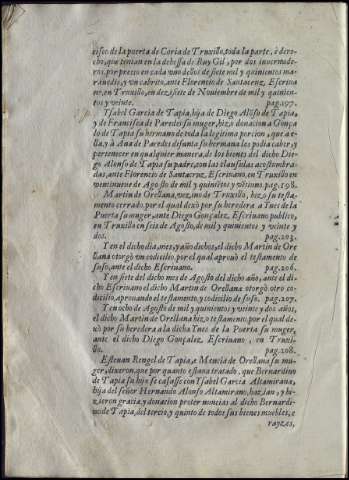 cisco de la puerta de Coria de Truxillo, toda la parte, ò dere-
cho, que tenian en la dehessa de Ruy Gil, por dos inuernade-
ros, por precio en cada vno dellos de siete mil y quinientos ma-
rauedis, y vn cabrito, ante Florencio de Santacruz, Escriua
no, en Truxillo, en diez y siete de Nouiembre de mil y quinien-
tos y veinte. pag. 197.
Ysabel Garcia de Tapia, hija de Diego Alõso de Tapia,
y de Francisca de Paredes su muger, hizo donacion a Gonça
lo de Tapia su hermano de toda la legitima porcion, que a e-
lla, y à Ana de Paredes difunta su hermana les podia caber, y
pertenecer en qualquier manera, de los bienes del dicho Die
go Alonso de Tapia su padre, con las clausulas acostumbra-
das, ante Florencio de Santacruz, Escriuano, en Truxillo en
veintinueue de Agosto de mil y quinientos y vltimo. pag. 198.
Martin de Orellana, vezino de Truxillo, hizo su testa-
mento cerrado, por el qual dexò por su heredera a Ynes de la
Puerta su muger, ante Diego Gonçalez, Escriuano publico,
en Truxillo en seis de Agosto, de mil y quinientos y veinte y
dos. pag. 203.
Y en el dicho dia, mes, y año dichos, el dicho Martin de Ore
llana otorgò vn codicilio, por el qual aprouò el testamento de
suso, ante el dicho Escriuano. pag. 206.
Y en siete del dicho mes de Agosto del dicho año, ante el di-
cho Escriuano el dicho Martin de Orellana otorgò otro co-
dicilio, aprouando el testamento, y codicilio de suso. pag. 207.
Y en ocho de Agosto de mil y quinientos y veinte y dos años,
el dicho Martin de Orellana hizo testamento, por el qual de-
xò por su heredera a la dicha Ynes de la Puerta su muger,
ante el dicho Diego Gonçalez, Escriuano, en Truxi-
llo. pag. 208.
Esteuan Rengel de Tapia, e Mencia de Orellana su mu-
ger, dixeron, que por quanto estaua tratado, que Bernardino
de Tapia su hijo se casasse con Ysabel Garcia Altamirana,
hija del señor Hernando Alonso Altamirano, hazian, y hi-
zieron gracia, y donacion propter nuncias al dicho Bernardi-
no de Tapia, del tercio, y quinto de todos sus bienes muebles, e
rayzes,